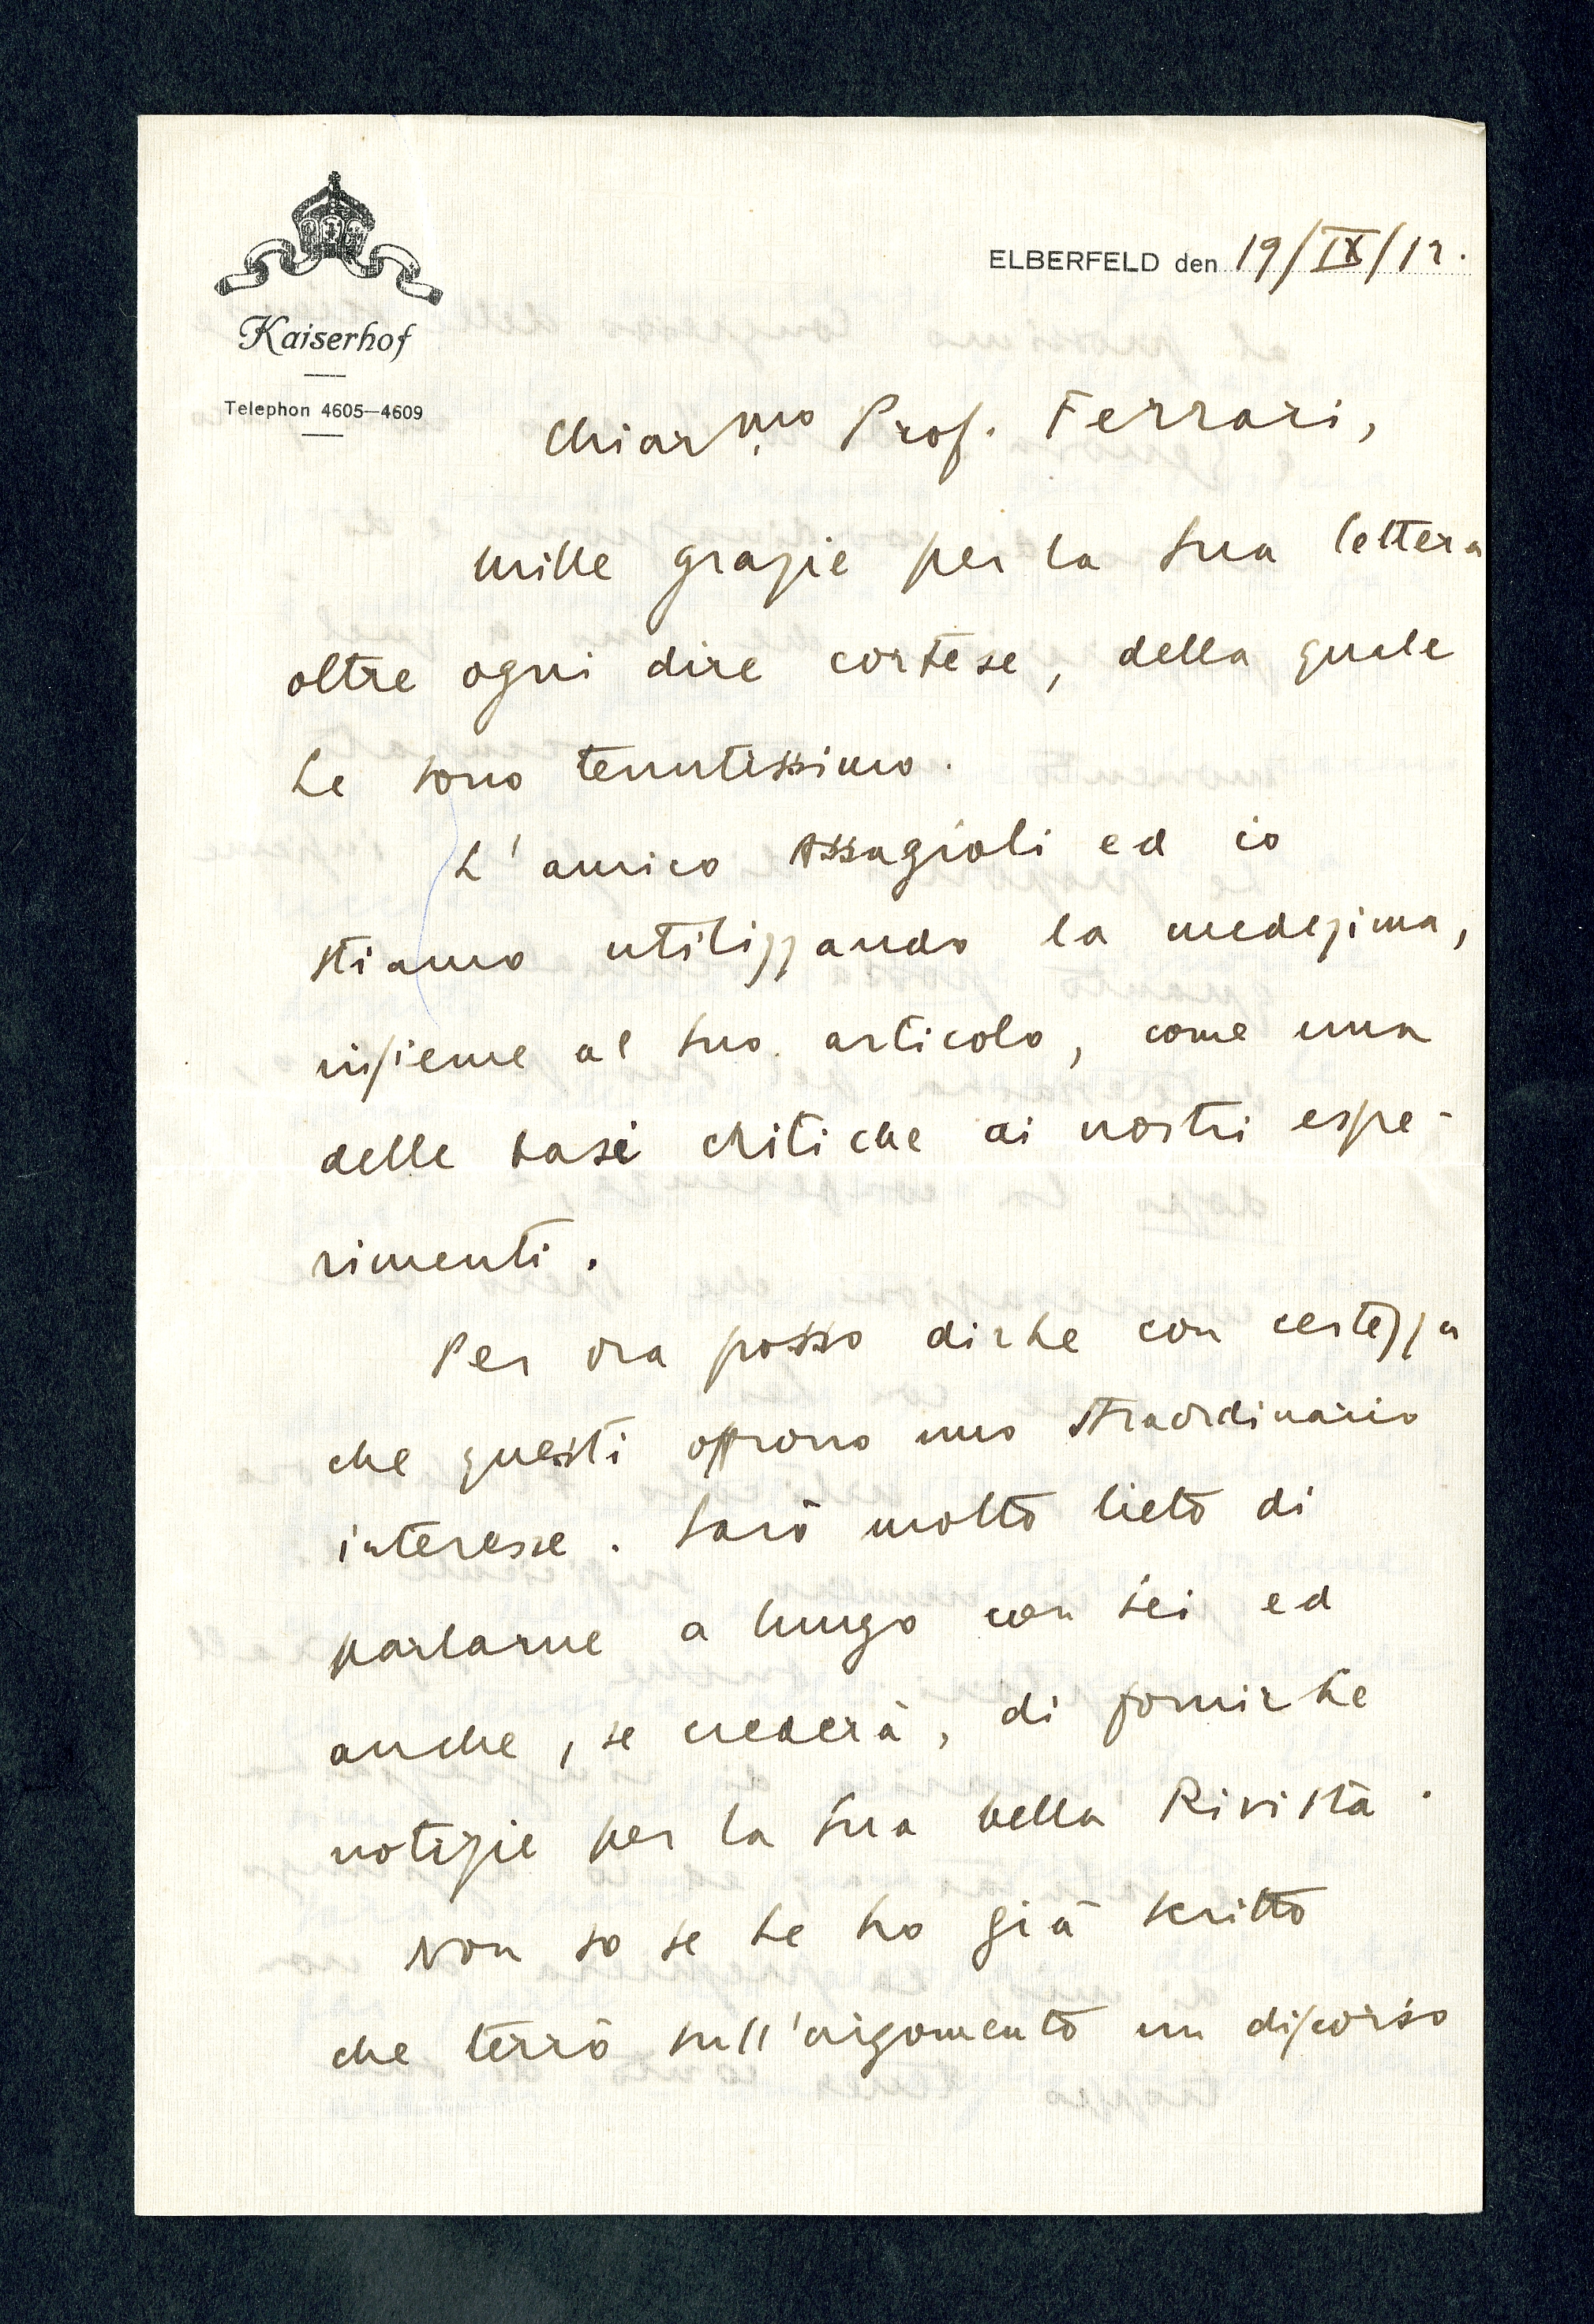 Kaiserhof
Telephon 4605—4609
ELBERFELD den 19/IX/12.
Chiar.mo Prof. Ferrari,
mille grazie per la Sua lettera
oltre ogni dire cortese, della quale
Le sono tenutissimo.
L'amico Assagioli ed io
stiamo utilizzando la medezima,
insieme al Suo articolo, come una
delle basi critiche ai nostri espe-
rimenti.
Per ora posso dirLe con certezza
che questi offrono uno straordinario
interesse. Sarò molto lieto di
parlarne a lungo con Lei ed
anche, se crederà, di fornirLe
notizie per la Sua bella Rivista.
Non so se Le ho già scritto
che terrò sull'argomento un discorso